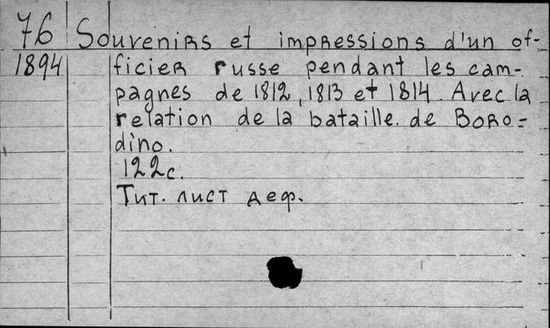 76 Souvenirs et impressions d'un of-
1894 ficier russe pendant les cam-
pagnes de 1812, 1813 et 1814. Avec la
relation de la bataille. de Boro-
dino.
122с.
Тит. лист деф.